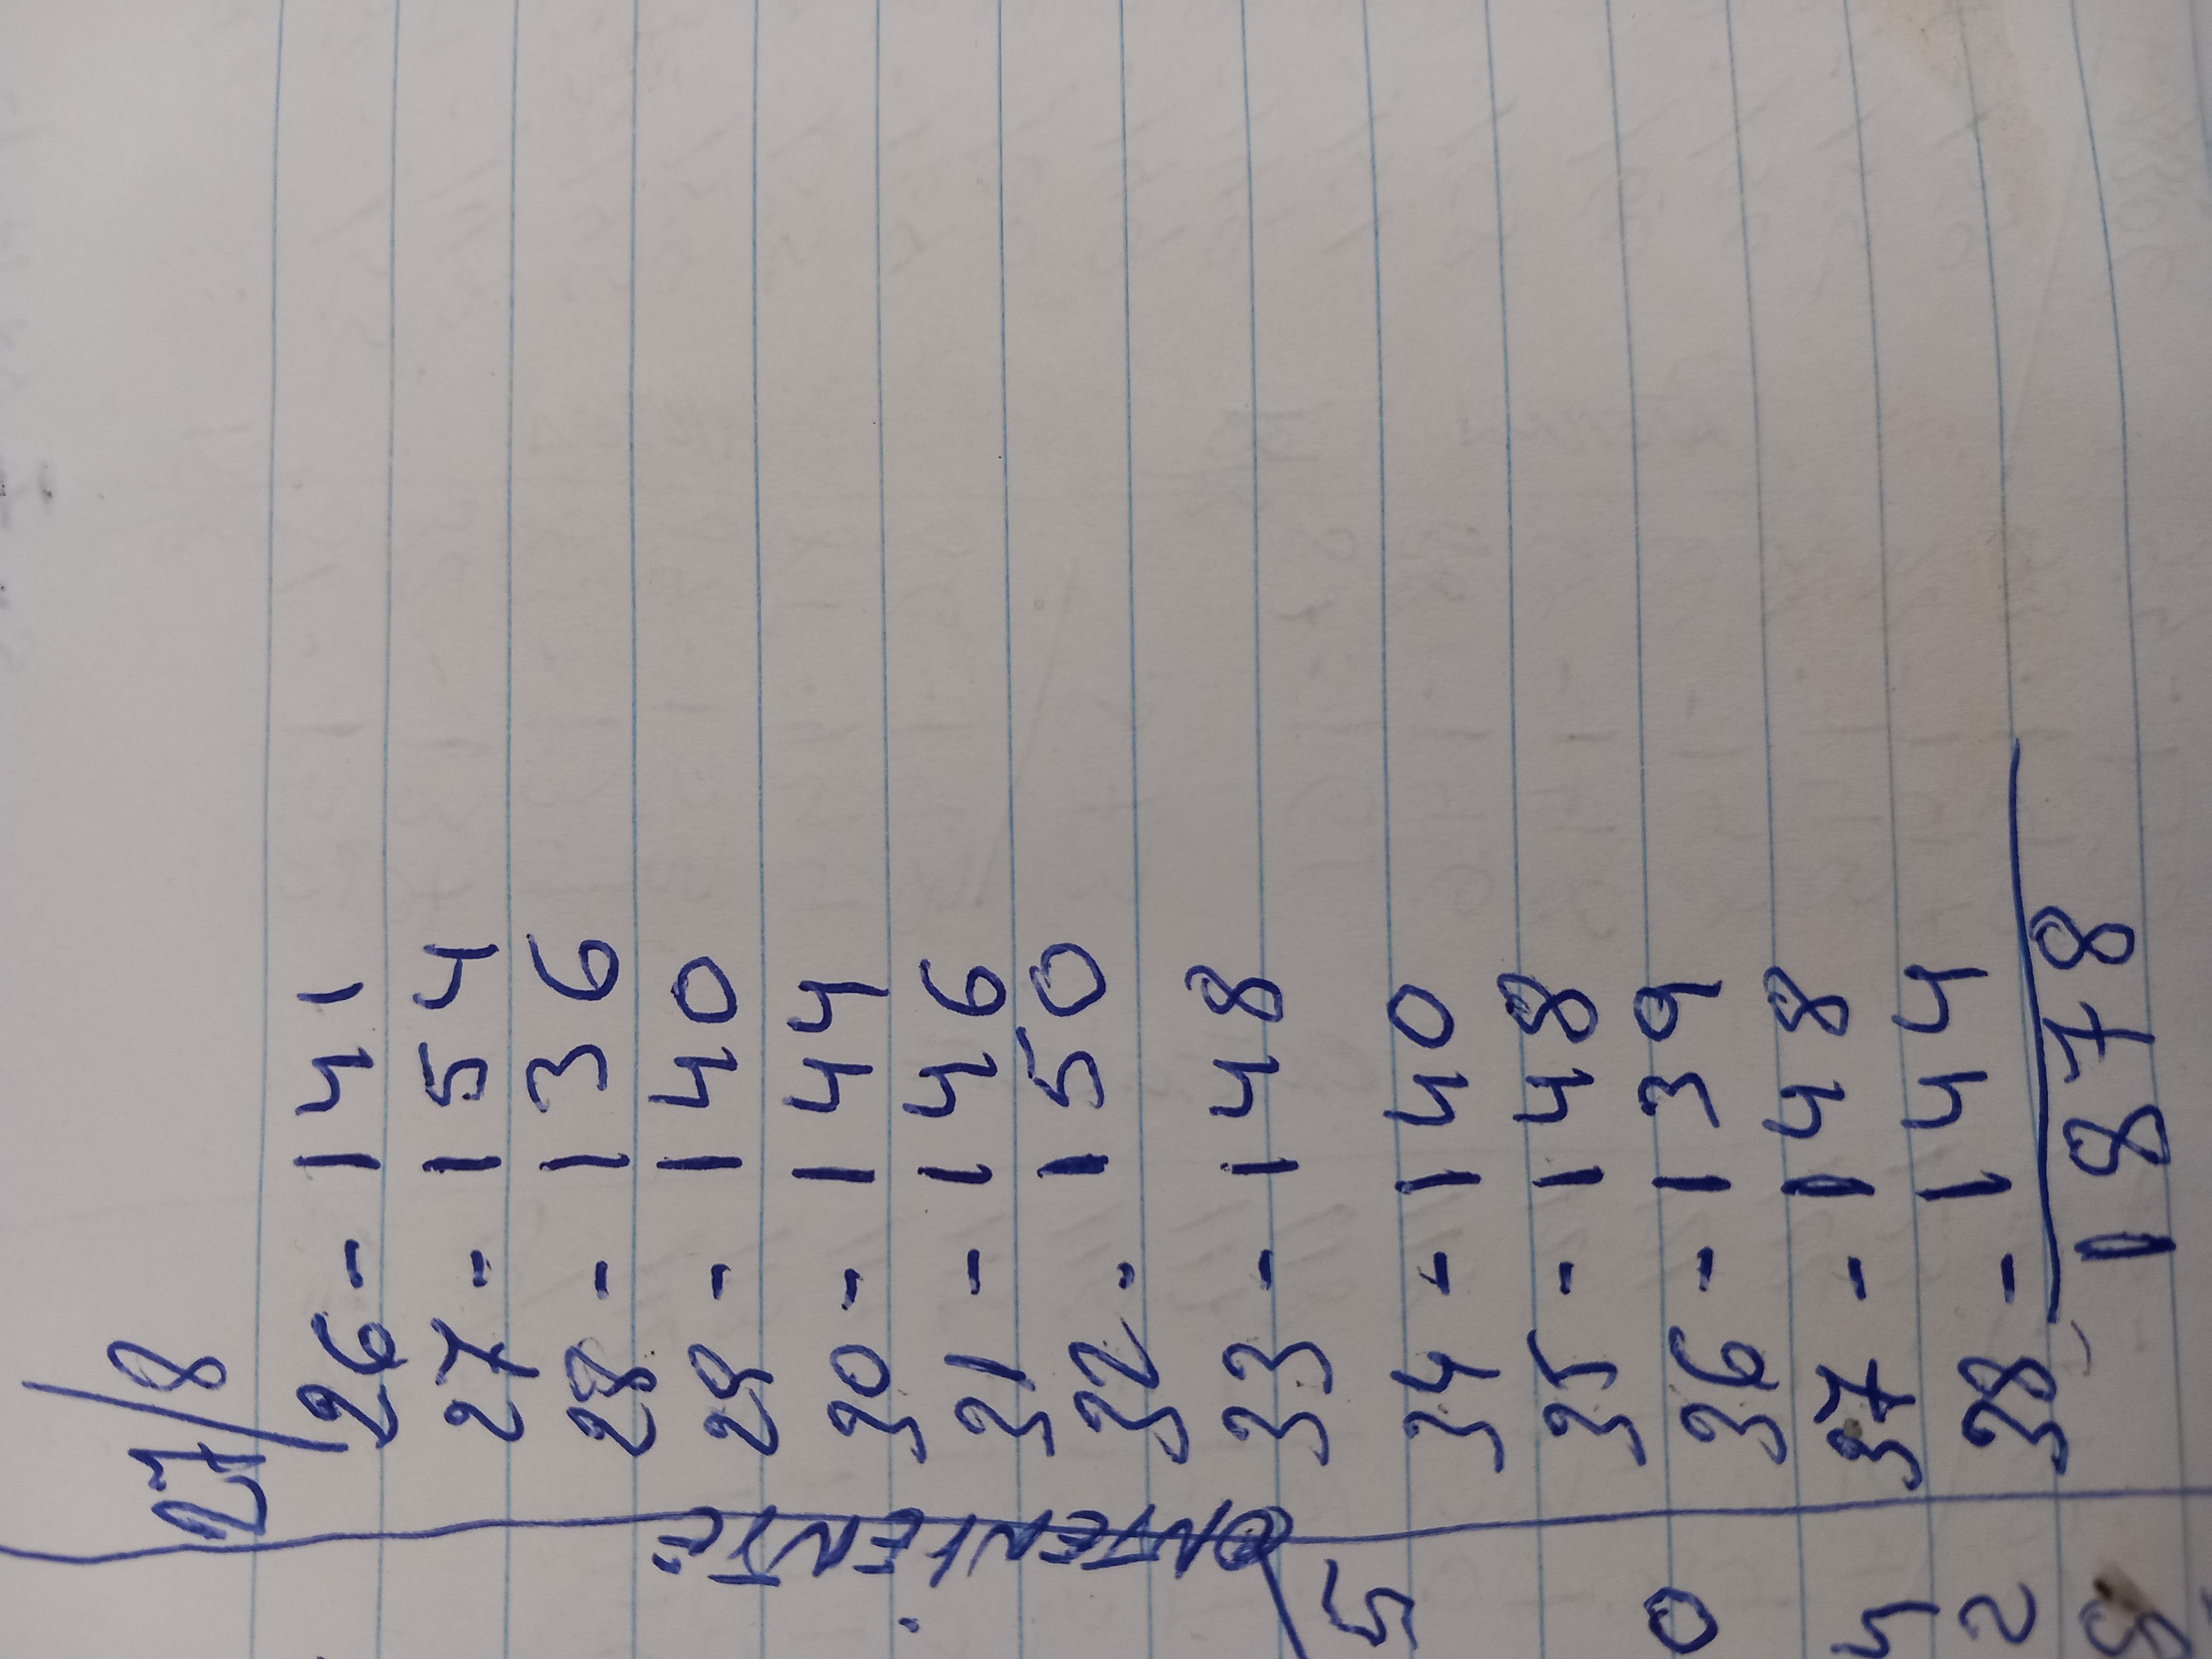 21/8
26- 141
27- 154
28- 136
29- 140
30- 144
31- 146
32. 150
33- 148
34- 140
35- 148
36- 139
37- 148
38- 144
1878
5
0
5
2